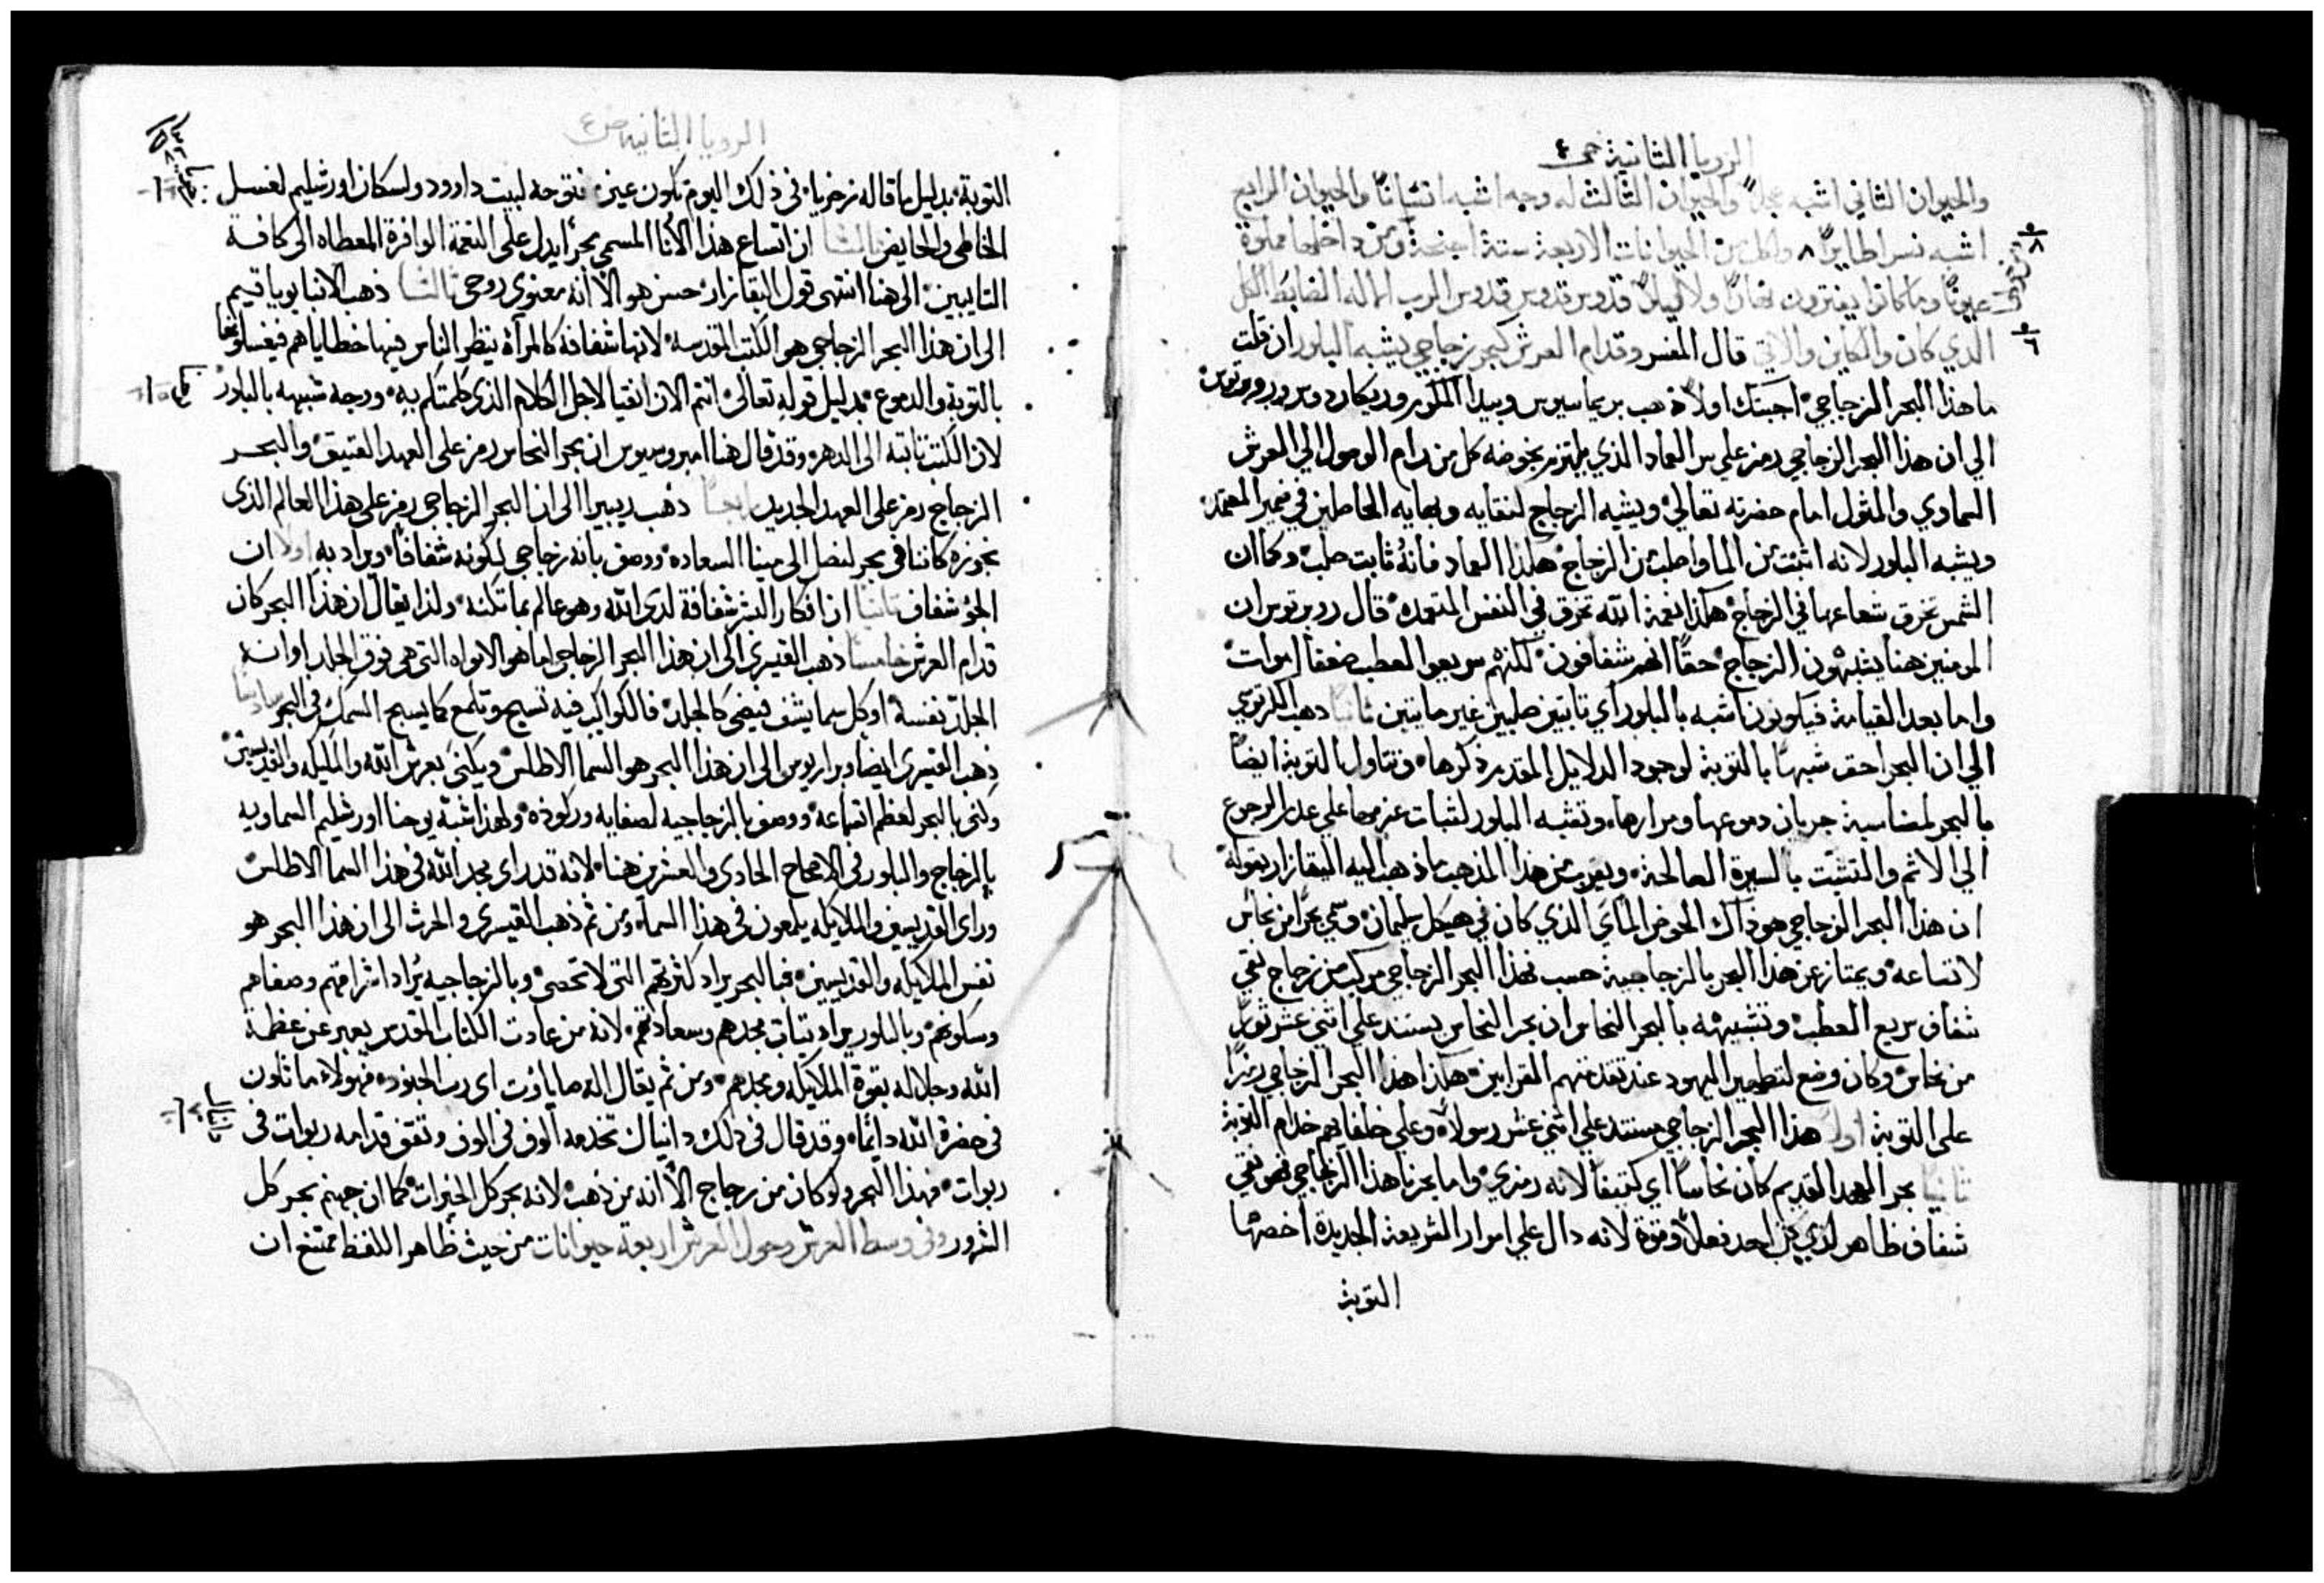 الرويا الثانية
والحيوان الثاني اشبه عجلاً والحيوان الثالث له وجه اشبه انسانًا والحيوان الرابع
اشبه نسرا طايرًا ٨ ولكل من الحيوانات الاربعة ستة اجنحة ومن داخلها مملوة
عيونًا وما كانوا يفترون نهارًا ولا ليلاً قدوس قدوس قدوس الرب الاله الضابط الكل
الذي كان والكاين والاتي قال المفسر وقدام العرش كبحر زجاجي يشبه البلور ان قلت
ما هذا البحر الزجاجي اجبتك اولاً ذهب بريماسيوس وبيدا المكور وريكاردوس وروبرتوس
الي ان هذا البحر الزجاجي رمز علي سر العماد الذي يلتزم بخوضه كل من رام الوصول الي العرش
السماوي والمثول امام حضرته تعالي ويشبه الزجاج لنقايه وبهايه الحاصلين في ضمير المعتمد
ويشبه البلور لانه اثبت من الما واصلب من الزجاج هكذا العماد فانه ثابت صلب وكما ان
الشمس تخرق شعاعها في الزجاج هكذا نعمة الله تخرق في النفس المتعمده قال روبرتوس ان
المومنين هنا يشبهون الزجاج حقًا انهم شفافون لكنهم سريعوا العطب ضعفا اموات
واما بعد القيامة فيكونون اشبه بالبلور اي ثابتين صلبين غير مايتين ثانيًا ذهب الكرتوسي
الي ان البحر احق شبهًا بالتوبة لوجود الدلايل المقدم ذكرها وتتاول التوبة ايضًا
بالبحر لمناسبة جريان دموعها ومرارها وتشبه البلور لثبات عزمها علي عدم الرجوع
الي الاثم والتشبت بالسيرة الصالحة ويقرب من هذا المذهب ما ذهب اليه البقازار بقوله
ان هذا البحر الزجاجي هو ذاك الحوض الماي الذي كان في هيكل سليمان وسمي بحرًا من نحاس
لاتساعه ويمتاز عن هذا البحر بالزجاجية حسب فهذا البحر الزجاجي مركب من زجاج نقي
شفاف سريع العطب وتشبيهه بالبحر النحاس ان بحر النحاس يستند علي اثني عشر ثورًا
من نحاس وكان وضع لتطهير اليهود عند تقدمتهم القرابين هكذا هذا البحر الزجاجي رمزًا
علي التوبة اولاً هذا البحر الزجاجي مستند علي اثني عشر رسولاً وعلي خلفايهم خدام التوبة
ثانيًا بحر العهد القديم كان نحاسًا اي كثيفًا لانه رمزي واما بحرنا هذا الزجاجي فهو نقي
شفاف ظاهر لذي كل احد فعلاً وقوة لانه دال علي اسرار الشريعة الجديدة اخصها
التوبة
الرويا الثانية
التوبة بدليل ما قاله زخريا في ذلك اليوم تكون عين مفتوحه لبيت داوود ولسكان اورشليم لغسل
الخاطي والحايض ثالثًا ان اتساع هذا الانا المسمي بحرًا يدل على النعمة الوافرة المعطاه الى كافة
التايبين الى هنا انتهى قول البقازار حسن هو الا انه معنوي روحي ثالثًا ذهب الانبا يوياقيم
الى ان هذا البحر الزجاجي هو الكتب المقدسه لانها شفافة كالمرآة ينظر الناس فيها خطاياهم فيغسلونها
بالتوبة والدموع بدليل قوله تعالى انتم الان انقيا لاجل الكلام الذي كلمتكم به ووجه شبيهه بالبلور
لان الكتب ثابته الى الدهر وقد قال هنا امبروسيوس ان بحر النحاس رمز على العهد العتيق والبحر
الزجاج رمز على العهد الجديد رابعًا ذهب ريبيرا الى ان البحر الزجاجي رمز على هذا العالم الذى
نجوزه كاننا في بحر لنصل الى مينا السعاده ووصف بانه زجاجي لكونه شفافًا ويراد به اولاً ان
الجو شفاف ثانيًا ان افكار البشر شفافة لدى الله وهو عالم بما تكنه ولذا يقال ان هذا البحر كان
قدام العرش خامسًا ذهب القيسري الى ان هذا البحر الزجاجي اما هو الامواه التى هي فوق الجلد او انه
الجلد نفسه او كل سما يشف فيضي كالجلد فالكواكب فيه تسبح وتلمع كما يسبح السمك في البحر سادسًا
ذهب القيسري ايضا وبراريوس الى ان هذا البحر هو السما الاطلس ويكنى بعرش الله والمليكه والقديسين
وكني بالبحر لعظم اتساعه ووصف بالزجاجيه لصفايه وركوده ولهذا شبه يوحنا اورشليم السماويه
بالزجاج والبلور في الاصحاح الحادي والعشرين هنا لانه قد راى مجد الله في هذا السما الاطلس
وراى القديسين والملايكه يلمعون في هذا السما ومن ثم ذهب القيسري والحرث الى ان هذا البحر هو
نفس الملايكه والقديسين فبالبحر يراد كثرتهم التى لا تحصى وبالزجاجيه يُراد اشراقهم وصفاهم
وسكونهم وبالبلور يراد ثبات مجدهم وسعادتهم لانه من عادت الكتاب المقدس يعبر عن عظمة
الله وجلاله بقوة الملايكه ومجدهم ومن ثم يقال اله صاباوت اى رب الجنود فهولاء ماثلون
في حضرة الله دايمًا وقد قال في ذلك دانيال تخدمه الوف في الوف وتقف قدامه ربوات في
ربوات فهذا البحر ولو كان من زجاج الا انه من ذهب لانه بحر كل الخيرات كما ان جهنم بحر كل
الشرور وفي وسط العرش وحول العرش اربعة حيوانات من حيث ظاهر اللفظ ممتنع ان